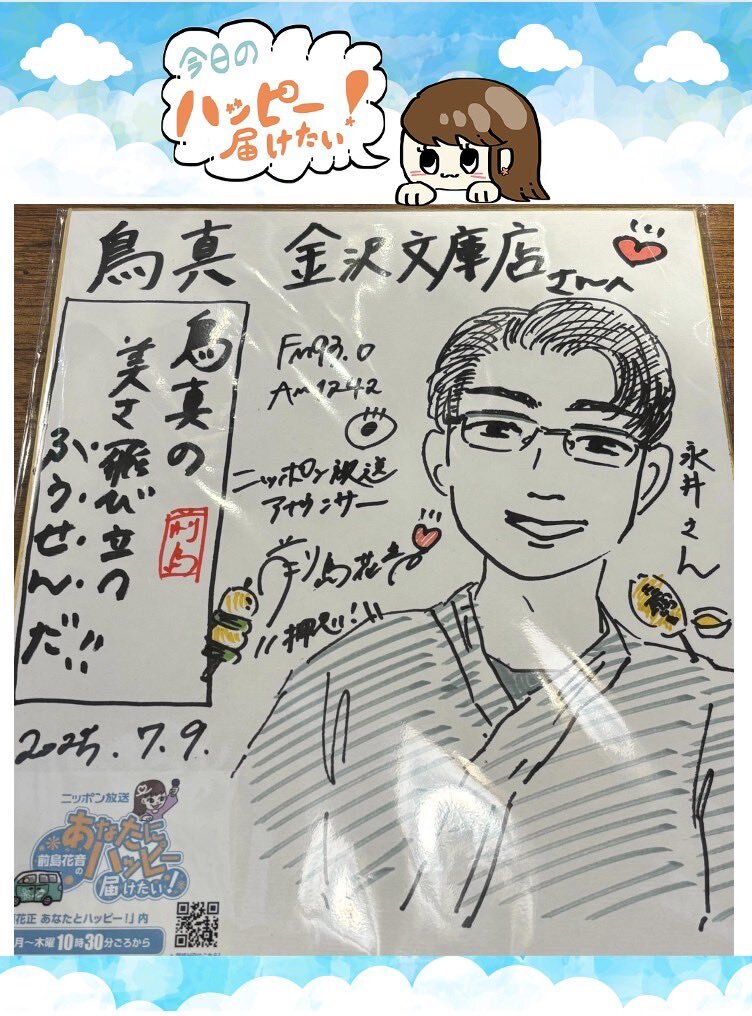 今日の
ハッピー!
届けたい!
鳥真 金沢文庫店さんへ
鳥真の
美さ飛び立つ
ふうせんだ!!
前島
FM93.0
AM1242
ニッポン放送
アナウンサー
前島花音
永井さん
2025.7.9.
ニッポン放送
前島花音の
あなたに
ハッピー
届けたい!
花正 あなたとハッピー!」内
月〜木曜10時30分ごろから